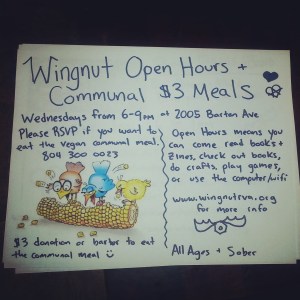 Wingnut Open Hours +
Communal $3 Meals
Wednesdays from 6-9pm at 2005 Barton Ave
Please RSVP if you want to
eat the vegan communal meal.
804 300 0023
$3 donation or barter to eat
the communal meal
Open Hours means you
can come read books +
zines, check out books,
do crafts, play games,
or use the computer/wifi
www.wingnutrva.org
for more info
All Ages + Sober